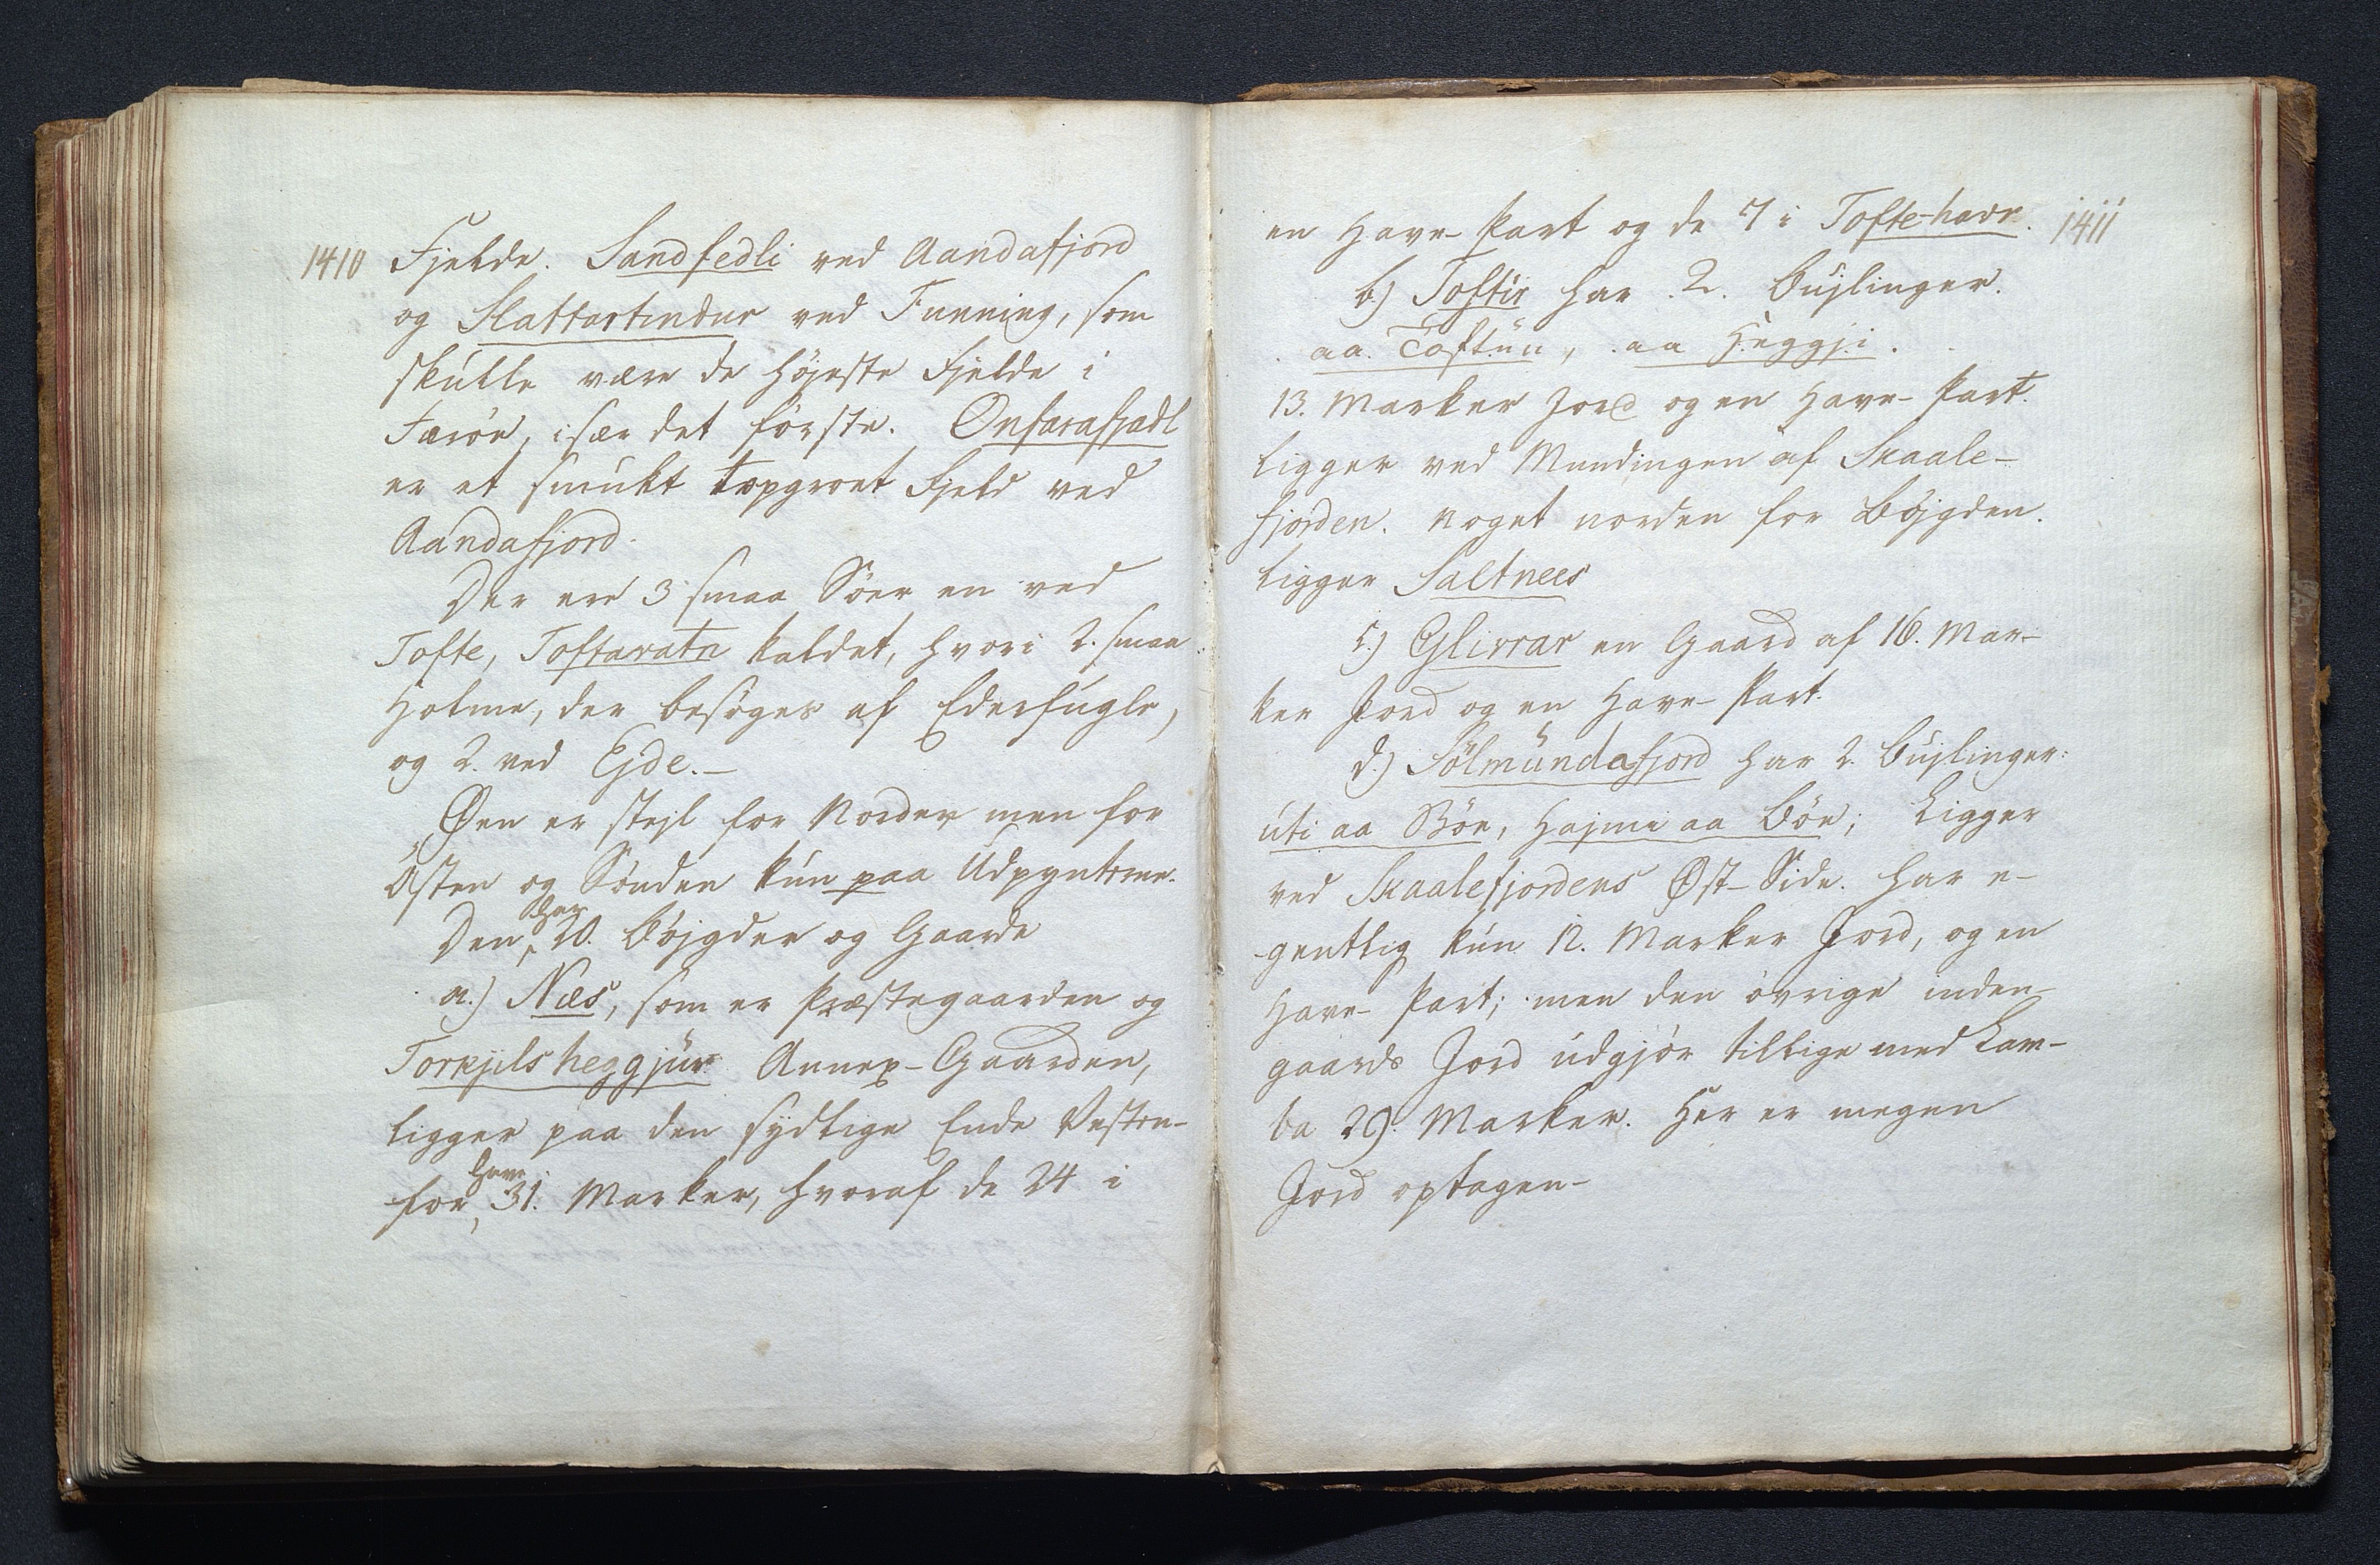 1410
Fjelde. Sandfedli ved Aandafjord
og Slattartindur ved Funning, som
skulle være de höjeste Fjelde i
Færöe, især det förste. Onfarafjadl
er et smukt topgroet Fjeld ved
Aandafjord.
Der ere 3 smaa Söer en ved
Tofte, Toftavatn kaldet, hvori 2. smaa
Holme, der besöges af Ederfugle,
og 2. ved Ejde.—
Øen er stejl for Norden men for
Østen og Sönden kun paa Udpynterne.
Den har 20. Böjgder og Gaarde
a.) Næs, som er Præstegaarden og
Torkjilsheggjur Annex-Gaarden,
ligger paa den sydlige Ende Vesten-
for, have 31. Marker, hvoraf de 24 i
1411
en Have-Part og de 7 i Tofte-havr.
b.) Toftir har 2. Bujlinger.
aa Toftun, aa Heggji.
13. Marker Jord og en Have-Part.
ligger ved Mundingen af Skaale-
fjorden. noget norden for Böjgden.
ligger Saltnees
c.) Glivrar en Gaard af 16. Mar-
ker Jord og en Have-Part.
d.) Sölmundafjord har 2. Bujlinger:
uti aa Böe, Hajmi aa Böe; Ligger
ved Skaalefjordens Øst-Side. har e-
gentlig kun 12. Marker Jord, og en
Have-Part; men den övrige inden-
gaards Jord udgjör tillige med Lam-
ba 29. Marker. Her er megen
Jord optagen-